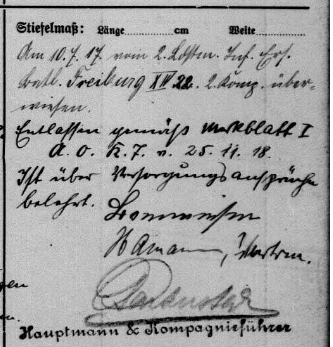 Stiefelmaß: Länge cm Weite
Am 10.7.17. vom 2. Ldstm. Inf. Ers.
Batl. Freiburg XIV 22. 2. Komp. über-
wiesen.
Entlassen gemäss Merkblatt I
A.O.K. 7. v. 25.11.18.
Ist über Versorgungsansprüche
belehrt.
Hauptmann & Kompagnieführer